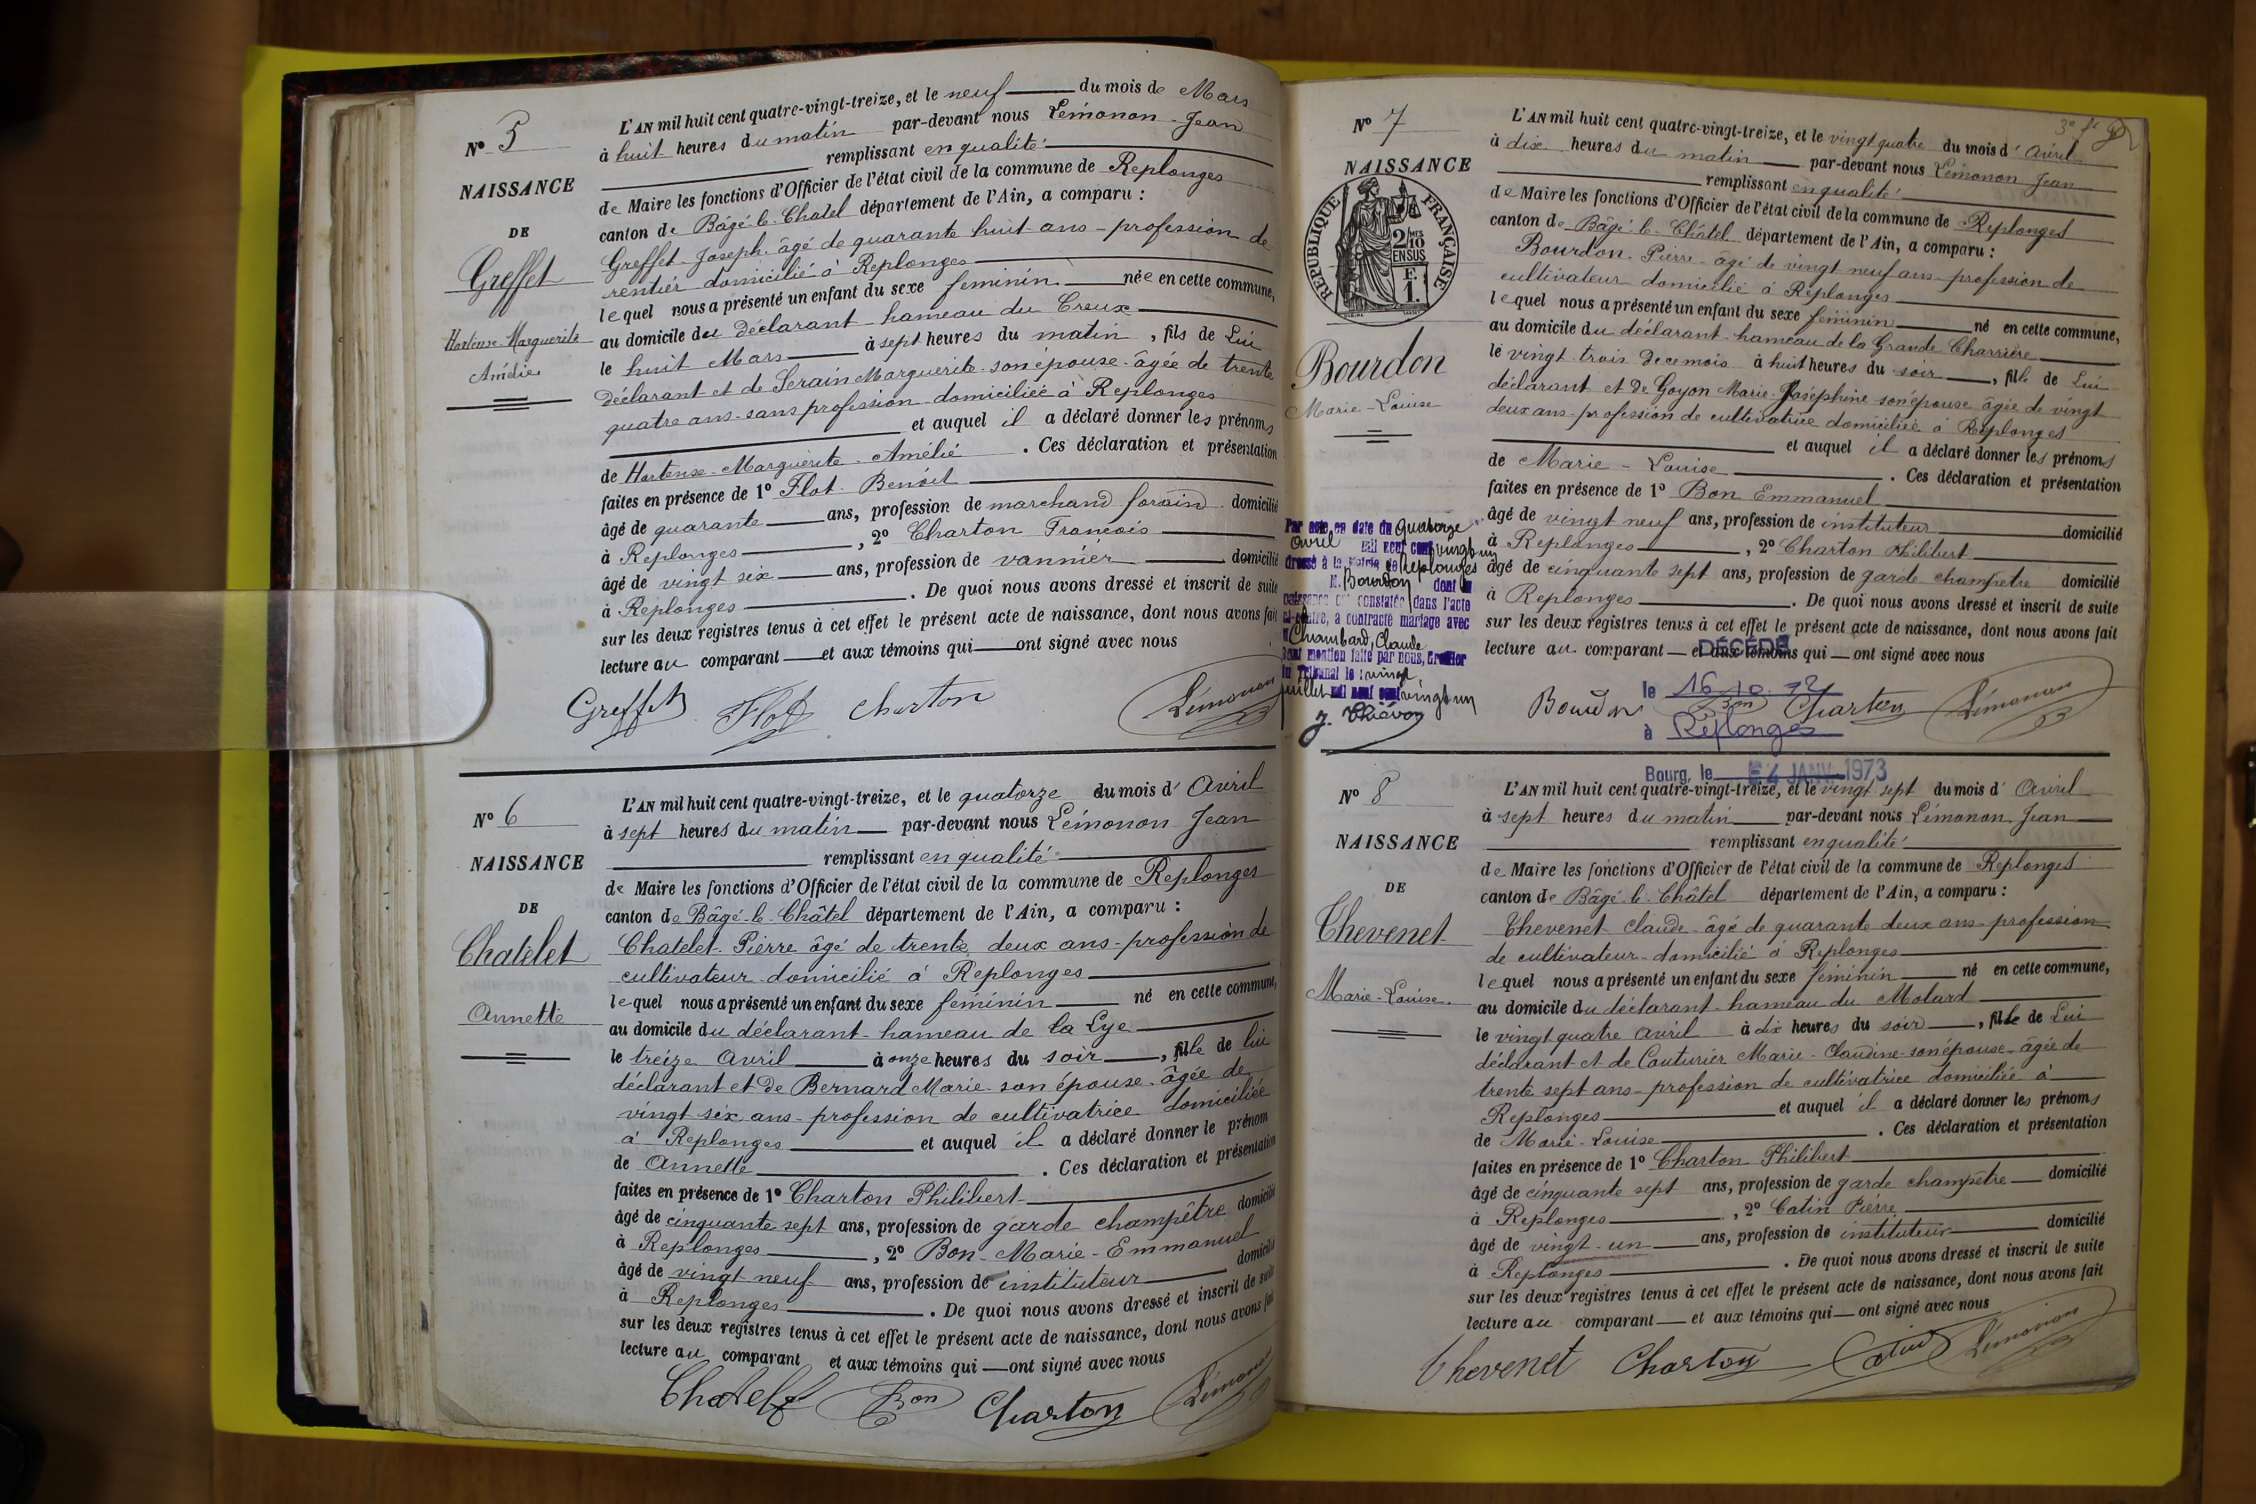 N° 5
NAISSANCE
DE
Greffet
Hortense-Marguerite
Amélie
L'AN mil huit cent quatre-vingt-treize, et le neuf du mois de Mars
à huit heures du matin par-devant nous Lémonon Jean
remplissant en qualité
de Maire les fonctions d'Officier de l'état civil de la commune de Replonges
canton de Bâgé-le-Chatel département de l'Ain, a comparu :
Greffet Joseph âgé de quarante huit ans - profession de
rentier domicilié à Replonges
lequel nous a présenté un enfant du sexe feminin née en cette commune,
au domicile du déclarant hameau du Creux
le huit Mars à sept heures du matin, fils de Lui
déclarant et de Serain Marguerite son épouse âgée de trente
quatre ans sans profession domiciliée à Replonges
et auquel il a déclaré donner les prénoms
de Hortense-Marguerite-Amélie. Ces déclaration et présentation
faites en présence de 1° Flot Benoit
âgé de quarante ans, profession de marchand forain domicilié
à Replonges, 2° Charton François
âgé de vingt six ans, profession de vannier domicilié
à Replonges. De quoi nous avons dressé et inscrit de suite
sur les deux registres tenus à cet effet le présent acte de naissance, dont nous avons fait
lecture au comparant et aux témoins qui ont signé avec nous
Greffet Flot Charton Lémonon
N° 6
NAISSANCE
DE
Chatelet
Annette
L'AN mil huit cent quatre-vingt-treize, et le quatorze du mois d'Avril
à sept heures du matin par-devant nous Lémonon Jean
remplissant en qualité
de Maire les fonctions d'Officier de l'état civil de la commune de Replonges
canton de Bâgé-le-Châtel département de l'Ain, a comparu :
Chatelet Pierre âgé de trente deux ans - profession de
cultivateur domicilié à Replonges
lequel nous a présenté un enfant du sexe féminin né en cette commune,
au domicile du déclarant hameau de la Lye
le treize Avril à onze heures du soir, fille de lui
déclarant et de Bernard Marie son épouse âgée de
vingt six ans - profession de cultivatrice domiciliée
à Replonges et auquel il a déclaré donner le prénom
de Annette. Ces déclaration et présentation
faites en présence de 1° Charton Philibert
âgé de cinquante sept ans, profession de garde champêtre domicilié
à Replonges, 2° Bon-Marie-Emmanuel
âgé de vingt neuf ans, profession de instituteur domicilié
à Replonges. De quoi nous avons dressé et inscrit de suite
sur les deux registres tenus à cet effet le présent acte de naissance, dont nous avons fait
lecture au comparant et aux témoins qui ont signé avec nous
Chatelet Bon Charton Lémonon
N° 7
NAISSANCE
RÉPUBLIQUE FRANÇAISE
2/10
EN SUS
F.
1.
Bourdon
Marie-Louise
Par acte en date du quatorze
avril mil neuf cent vingt un
dressé à la mairie de Replonges
M. Bourdon dont la
naissance est constatée dans l'acte
ci-contre, a contracté mariage avec
M Chambard, Claude
Dont mention faite par nous, Greffier
du Tribunal le vingt
juillet mil neuf cent vingt un
L'AN mil huit cent quatre-vingt-treize, et le vingt quatre du mois d'Avril
à dix heures du matin par-devant nous Lémonon Jean
remplissant en qualité
de Maire les fonctions d'Officier de l'état civil de la commune de Replonges
canton de Bâgé-le-Châtel département de l'Ain, a comparu :
Bourdon Pierre âgé de vingt neuf ans profession de
cultivateur domicilié à Replonges
lequel nous a présenté un enfant du sexe féminin né en cette commune,
au domicile du déclarant hameau de la Grande Charrière
le vingt trois De ce mois à huit heures du soir, fille de Lui
déclarant et De Goyon Marie Joséphine son épouse âgée de vingt
deux ans profession de cultivatrice domiciliée à Replonges
et auquel il a déclaré donner les prénoms
de Marie-Louise. Ces déclaration et présentation
faites en présence de 1° Bon Emmanuel
âgé de vingt neuf ans, profession de instituteur domicilié
à Replonges, 2° Charton Philibert
âgé de cinquante sept ans, profession de garde champêtre domicilié
à Replonges. De quoi nous avons dressé et inscrit de suite
sur les deux registres tenus à cet effet le présent acte de naissance, dont nous avons fait
lecture au comparant et aux témoins qui ont signé avec nous
DÉCÉDÉ
le 16.10.72
à Replonges
Bourg, le 4 JANV. 1973
Bourdon Bon Charton Lémonon
N° 8
NAISSANCE
DE
Thevenet
Marie-Louise.
L'AN mil huit cent quatre-vingt-treize, et le vingt sept du mois d'Avril
à sept heures du matin par-devant nous Lémonon Jean
remplissant en qualité
de Maire les fonctions d'Officier de l'état civil de la commune de Replonges
canton de Bâgé-le-Châtel département de l'Ain, a comparu :
Thevenet Claude âgé de quarante deux ans - profession
de cultivateur domicilié à Replonges
lequel nous a présenté un enfant du sexe féminin né en cette commune,
au domicile du déclarant hameau du Molard
le vingt quatre Avril à dix heures du soir, fille de Lui
déclarant et de Couturier Marie-Claudine son épouse âgée de
trente sept ans - profession de cultivatrice domiciliée à
Replonges et auquel il a déclaré donner les prénoms
de Marie-Louise. Ces déclaration et présentation
faites en présence de 1° Charton Philibert
âgé de cinquante sept ans, profession de garde champêtre domicilié
à Replonges, 2° Catin Pierre
âgé de vingt-un ans, profession de instituteur domicilié
à Replonges. De quoi nous avons dressé et inscrit de suite
sur les deux registres tenus à cet effet le présent acte de naissance, dont nous avons fait
lecture au comparant et aux témoins qui ont signé avec nous
Thevenet Charton Catin Lémonon